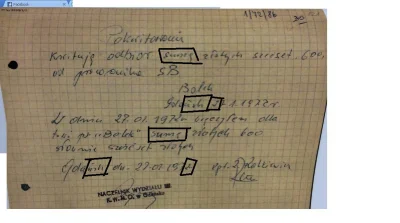 Facebook
1/72/86
20
Pokwitowanie
Kwituję odbiór sumę złotych sześćset 600,
od pracownika SB
Bolek
Gdańsk 1.1972r
W dniu 27.01.1972r wręczyłem dla
tw ps "Bolek" sumę złotych 600
słownie sześćset złotych
Gdańsk dn. 27.01.1972
NACZELNIK WYDZIAŁU III
K.W.M.O. w Gdańsku